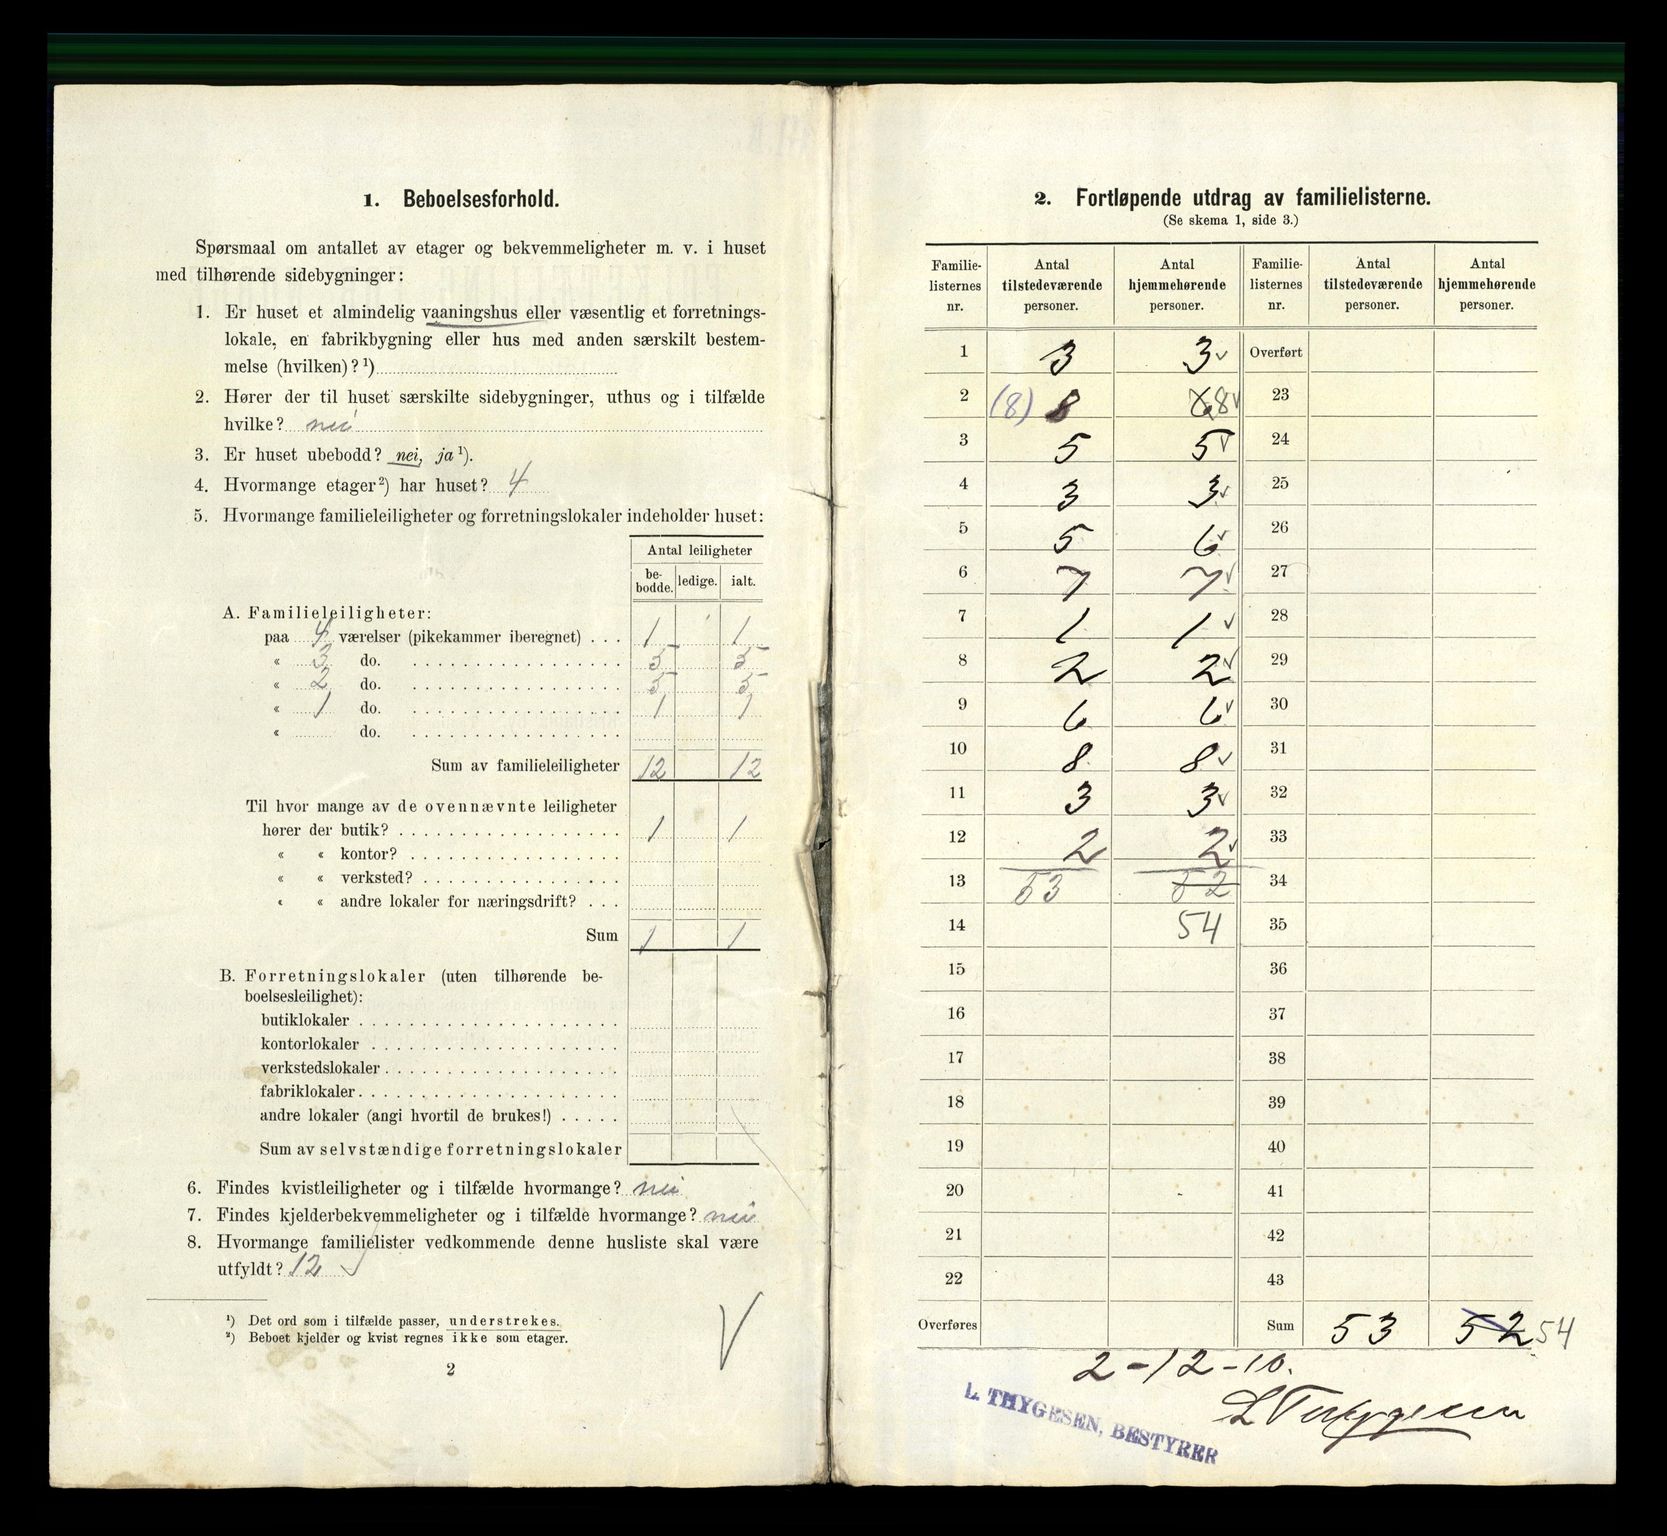 1. Beboelsesforhold.
Spørsmaal om antallet av etager og bekvemmeligheter m. v. i huset
med tilhørende sidebygninger:
1. Er huset et almindelig vaaningshus eller væsentlig et forretnings-
lokale, en fabrikbygning eller hus med anden særskilt bestem-
melse (hvilken)? ¹)
2. Hører der til huset særskilte sidebygninger, uthus og i tilfælde
hvilke? nei
3. Er huset ubebodd? nei, ja ¹).
4. Hvormange etager ²) har huset? 4
5. Hvormange familieleiligheter og forretningslokaler indeholder huset:
Antal leiligheter
be-
bodde. ledige. ialt.
A. Familieleiligheter:
paa 4 værelser (pikekammer iberegnet) . . . 1 1
« 3 do. 5 5
« 2 do. 5 5
« 1 do. 1 1
« do.
Sum av familieleiligheter 12 12
Til hvor mange av de ovennævnte leiligheter
hører der butik? 1 1
« « kontor?
« « verksted?
« « andre lokaler for næringsdrift? . . .
Sum 1 1
B. Forretningslokaler (uten tilhørende be-
boelsesleilighet):
butiklokaler
kontorlokaler
verkstedslokaler
fabriklokaler
andre lokaler (angi hvortil de brukes!)
Sum av selvstændige forretningslokaler
6. Findes kvistleiligheter og i tilfælde hvormange? nei
7. Findes kjelderbekvemmeligheter og i tilfælde hvormange? nei
8. Hvormange familielister vedkommende denne husliste skal være
utfyldt? 12
¹) Det ord som i tilfælde passer, understrekes.
²) Beboet kjelder og kvist regnes ikke som etager.
2
2. Fortløpende utdrag av familielisterne.
(Se skema 1, side 3.)
Familie-
listernes
nr. Antal
tilstedeværende
personer. Antal
hjemmehørende
personer. Familie-
listernes
nr. Antal
tilstedeværende
personer. Antal
hjemmehørende
personer.
1 3 3 Overført
2 (8) 8 6 8 23
3 5 5 24
4 3 3 25
5 5 6 26
6 7 7 27
7 1 1 28
8 2 2 29
9 6 6 30
10 8 8 31
11 3 3 32
12 2 2 33
13 53 52 34
14 54 35
15 36
16 37
17 38
18 39
19 40
20 41
21 42
22 43
Overføres Sum 53 52 54
2-12-10.
L. THYGESEN, BESTYRER
L Thygesen